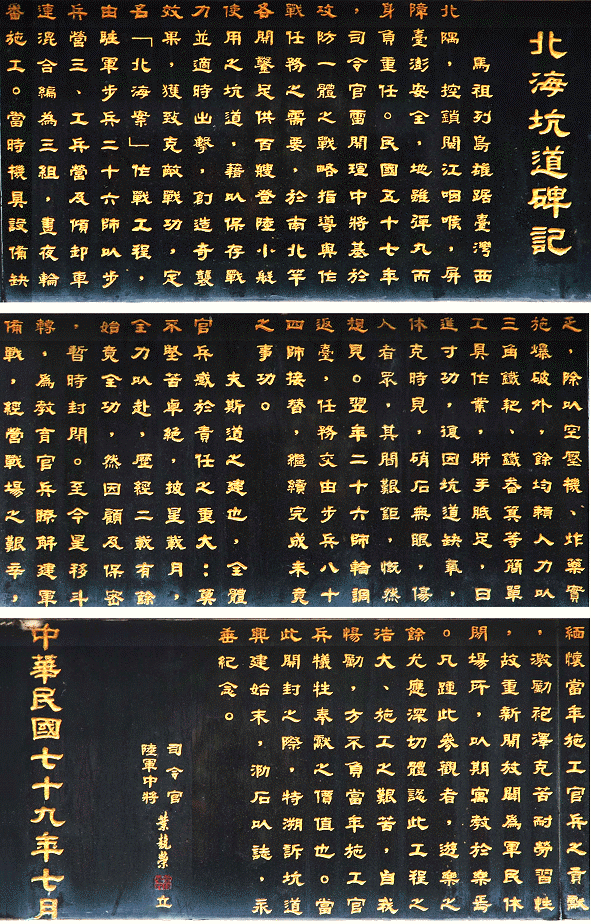 北海坑道碑記
馬祖列島雄踞臺灣西
北隅，控鎖閩江咽喉，屏
障臺澎安全，地雖彈丸而
身負重任。民國五十七年
，司令官雷開瑄中將基於
攻防一體之戰略指導與作
戰任務之需要，於南北竿
各開鑿足供百艘登陸小艇
使用之坑道，藉以保存戰
力並適時出擊，創造奇襲
效果，獲致克敵戰功，定
名「北海案」作戰工程，
由駐軍步兵二十六師以步
兵營三、工兵營及傾卸車
連混合編為三組，晝夜輪
番施工。當時機具設備缺
乏，除以空壓機、炸藥實
施爆破外，餘均賴人力以
三角鐵耙、鐵畚箕等簡單
工具作業，胼手胝足，日
進寸功，復因坑道缺氧，
休克時見，硝石無眼，傷
人者眾，其間艱鉅，慨然
想見。翌年二十六師輪調
返臺，任務交由步兵八十
四師接替，繼續完成未竟
之事功。
夫斯道之建也，全體
官兵感於責任之重大；莫
不堅苦卓絕，披星戴月，
全力以赴，歷經二載有餘
始竟全功，然因顧及保密
，暫時封閉。至今星移斗
轉，為教育官兵瞭解建軍
備戰，經營戰場之艱辛，
緬懷當年施工官兵之貢獻
，激勵袍澤克苦耐勞習性
，故重新開放闢為軍民休
閒場所，以期寓教於樂焉
。凡踵此參觀者，遊樂之
餘尤應深切體認此工程之
浩大、施工之艱苦，自我
惕勵，方不負當年施工官
兵犧牲奉獻之價值也。當
此開封之際，特溯訴坑道
興建始末，泐石以誌，永
垂紀念。
司令官
陸軍中將 葉競榮 立
中華民國七十九年七月